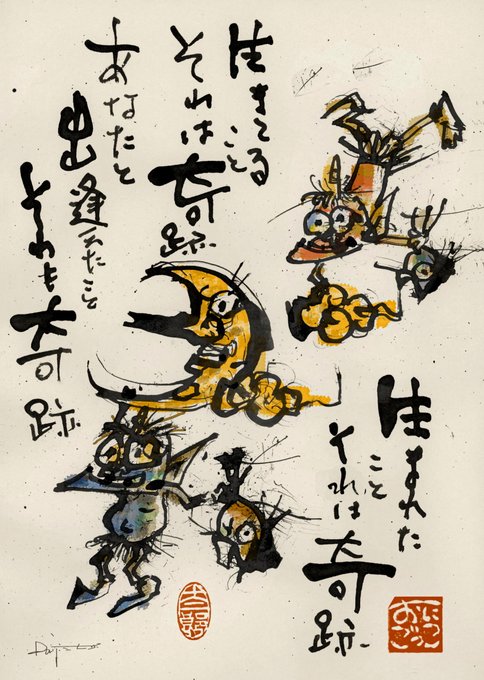 生まれた
こと
それは奇跡
生きてる
こと
それは奇跡
あなたと
出逢えたこと
それも奇跡